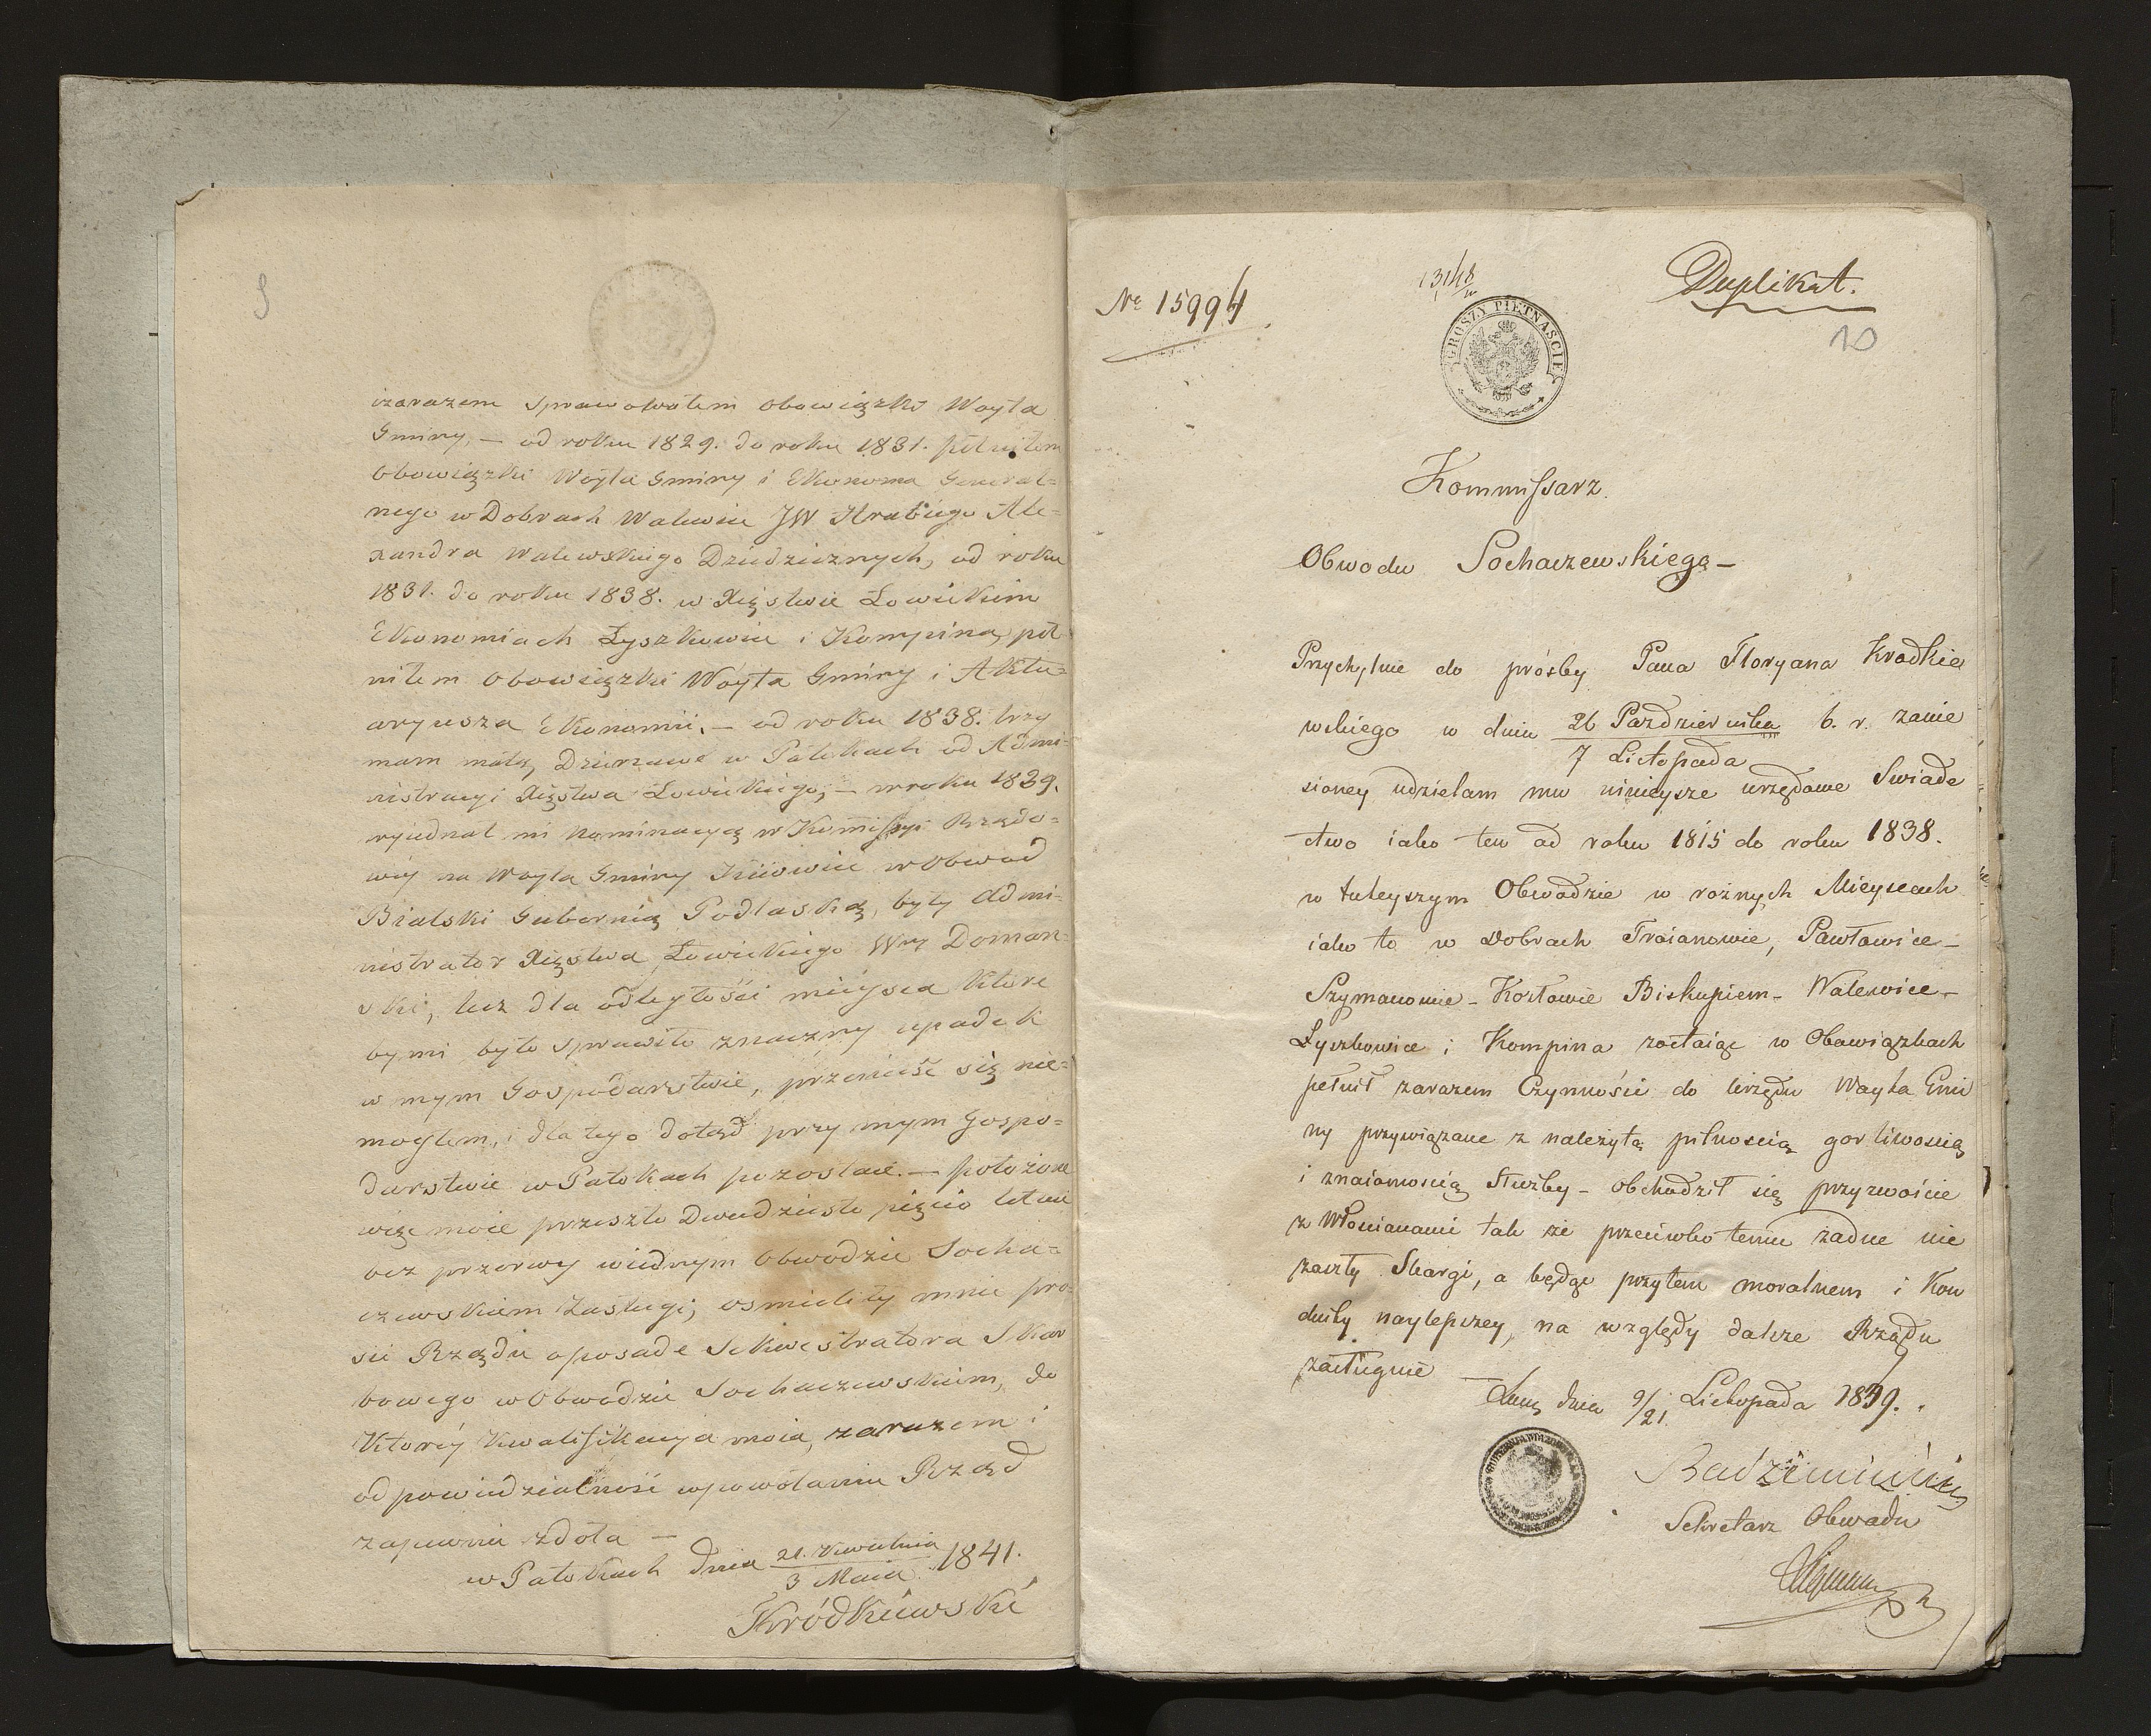 9
izarazem sprawowałem obowiązki Woyta
Gminy, — od roku 1829. do roku 1831. pełniłem
obowiązki Woyta Gminy i Ekonoma General=
nego w Dobrach Walewice JW Hrabiego Ale=
xandra Walewskiego Dziedzicznych, od roku
1831. do roku 1838. w Xięstwie Łowickim
Ekonomiach Łyszkowice i Kompina, peł
niłem obowiązki Woyta Gminy i Aktu=
aryusza Ekonomii, — od roku 1838. trzy
mam małą Dzierzawe w Patokach od Admi=
nistracyi Xięstwa Łowickiego, — w roku 1839.
wyiednał mi nominacyą w Komissyi Rządo=
wéy na Woyta Gminy Kiiowiec w Obwod
Bialski Gubernią Podlaską, były Admi=
nistrator Xięstwa Łowickiego Wny Doman=
ski, lecz dla odległości mieysca które
by mi było sprawiło znaczny upadek
w mym Gospodarstwie, przenieść się nie=
mogłem, i dla tego dotąd przy mym Gospo=
darstwie w Patokach pozostaie. — położone
więc moie przeszło dwudziesto pięcio letnie
bez przerwy wiednym Obwodzie Socha=
czewskiem Zasługi, osmieliły mnie pro=
sić Rządu oposade Sekwestratora Skar
bowego w Obwodzie Sochaczewskiem, do
któréy kwalifikacya moia, zarazem i
odpowiedzialność wpowołaniu Rząd
zapewnić zdoła —
w Patokach dnia 21. Kwietnia / 3 Maia 1841.
Kródkiewski
№ 15994
Duplikat.
10
GROSZY PIĘTNAŚCIE
Kommissarz
Obwodu Sochaczewskiego —
Przychylnie do prósby Pana Floryana Krodkie
wskiego w dniu 26 Pazdziernika / 7 Listopada b. r. zanie
sioney udzielam mu ninieysze urzędowe Swiade
ctwo iako ten od roku 1815 do roku 1838.
w tuteyszym Obwodzie w roznych Mieyscach
iako to w Dobrach Troianowie, Pawłowice —
Szymanowie — Kozłowie Biskupiem — Walewice —
Łyszkowice i Kompina zostaiąc w Obowiązkach
pełnił zarazem Czynności do Urzędu Woyta Gmi
ny przywiązane z należytą pilnoscią gorliwoscią
i znaiomoscią Służby — obchodził się przyzwoicie
z Włoscianami tak że przeciwko temu żadne nie
zaszły Skargi, a będąc przytem moralnem i Kon
duity naylepszey, na względy dalsze Rządu
zasługuie —
dnia 9/21. Listopada 1839.
Radzimiński
Sekretarz Obwodu